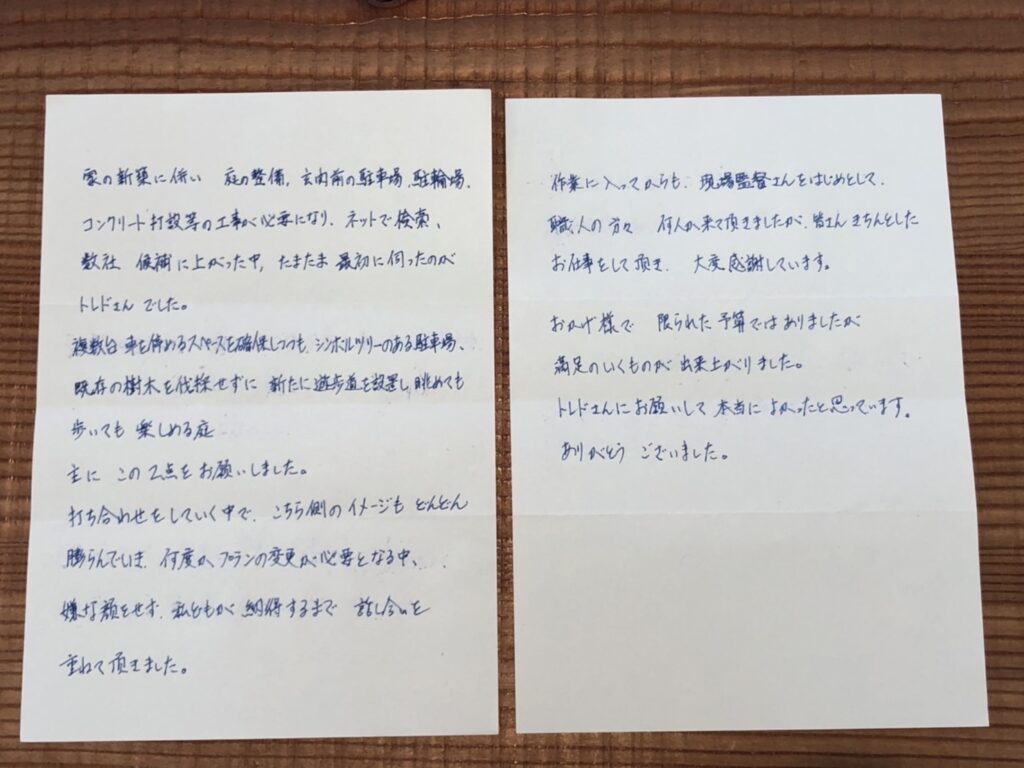 家の新築に伴い 庭の整備、玄関前の駐車場、駐輪場、
コンクリート打設等の工事が必要になり、ネットで検索、
数社 候補に上がった中、たまたま 最初に伺ったのが
トレドさん でした。
複数台 車を停めるスペースを確保しつつも、シンボルツリーのある駐車場、
既存の樹木を伐採せずに 新たに遊歩道を設置し 眺めても
歩いても 楽しめる庭
主に この2点を お願いしました。
打ち合わせをしていく中で、こちら側の イメージも どんどん
膨らんでいき、何度か、プランの変更が必要となる中、
嫌な顔をせず、私どもが 納得するまで 話し合いを
重ねて 頂きました。
作業に入ってからも、現場監督さんをはじめとして、
職人の方々 何人か来て頂きましたが、皆さん きちんとした
お仕事をして頂き、大変感謝しています。
おかげ様で 限られた予算ではありましたが
満足のいくものが 出来上がりました。
トレドさんにお願いして 本当に よかったと思っています。
ありがとう ございました。